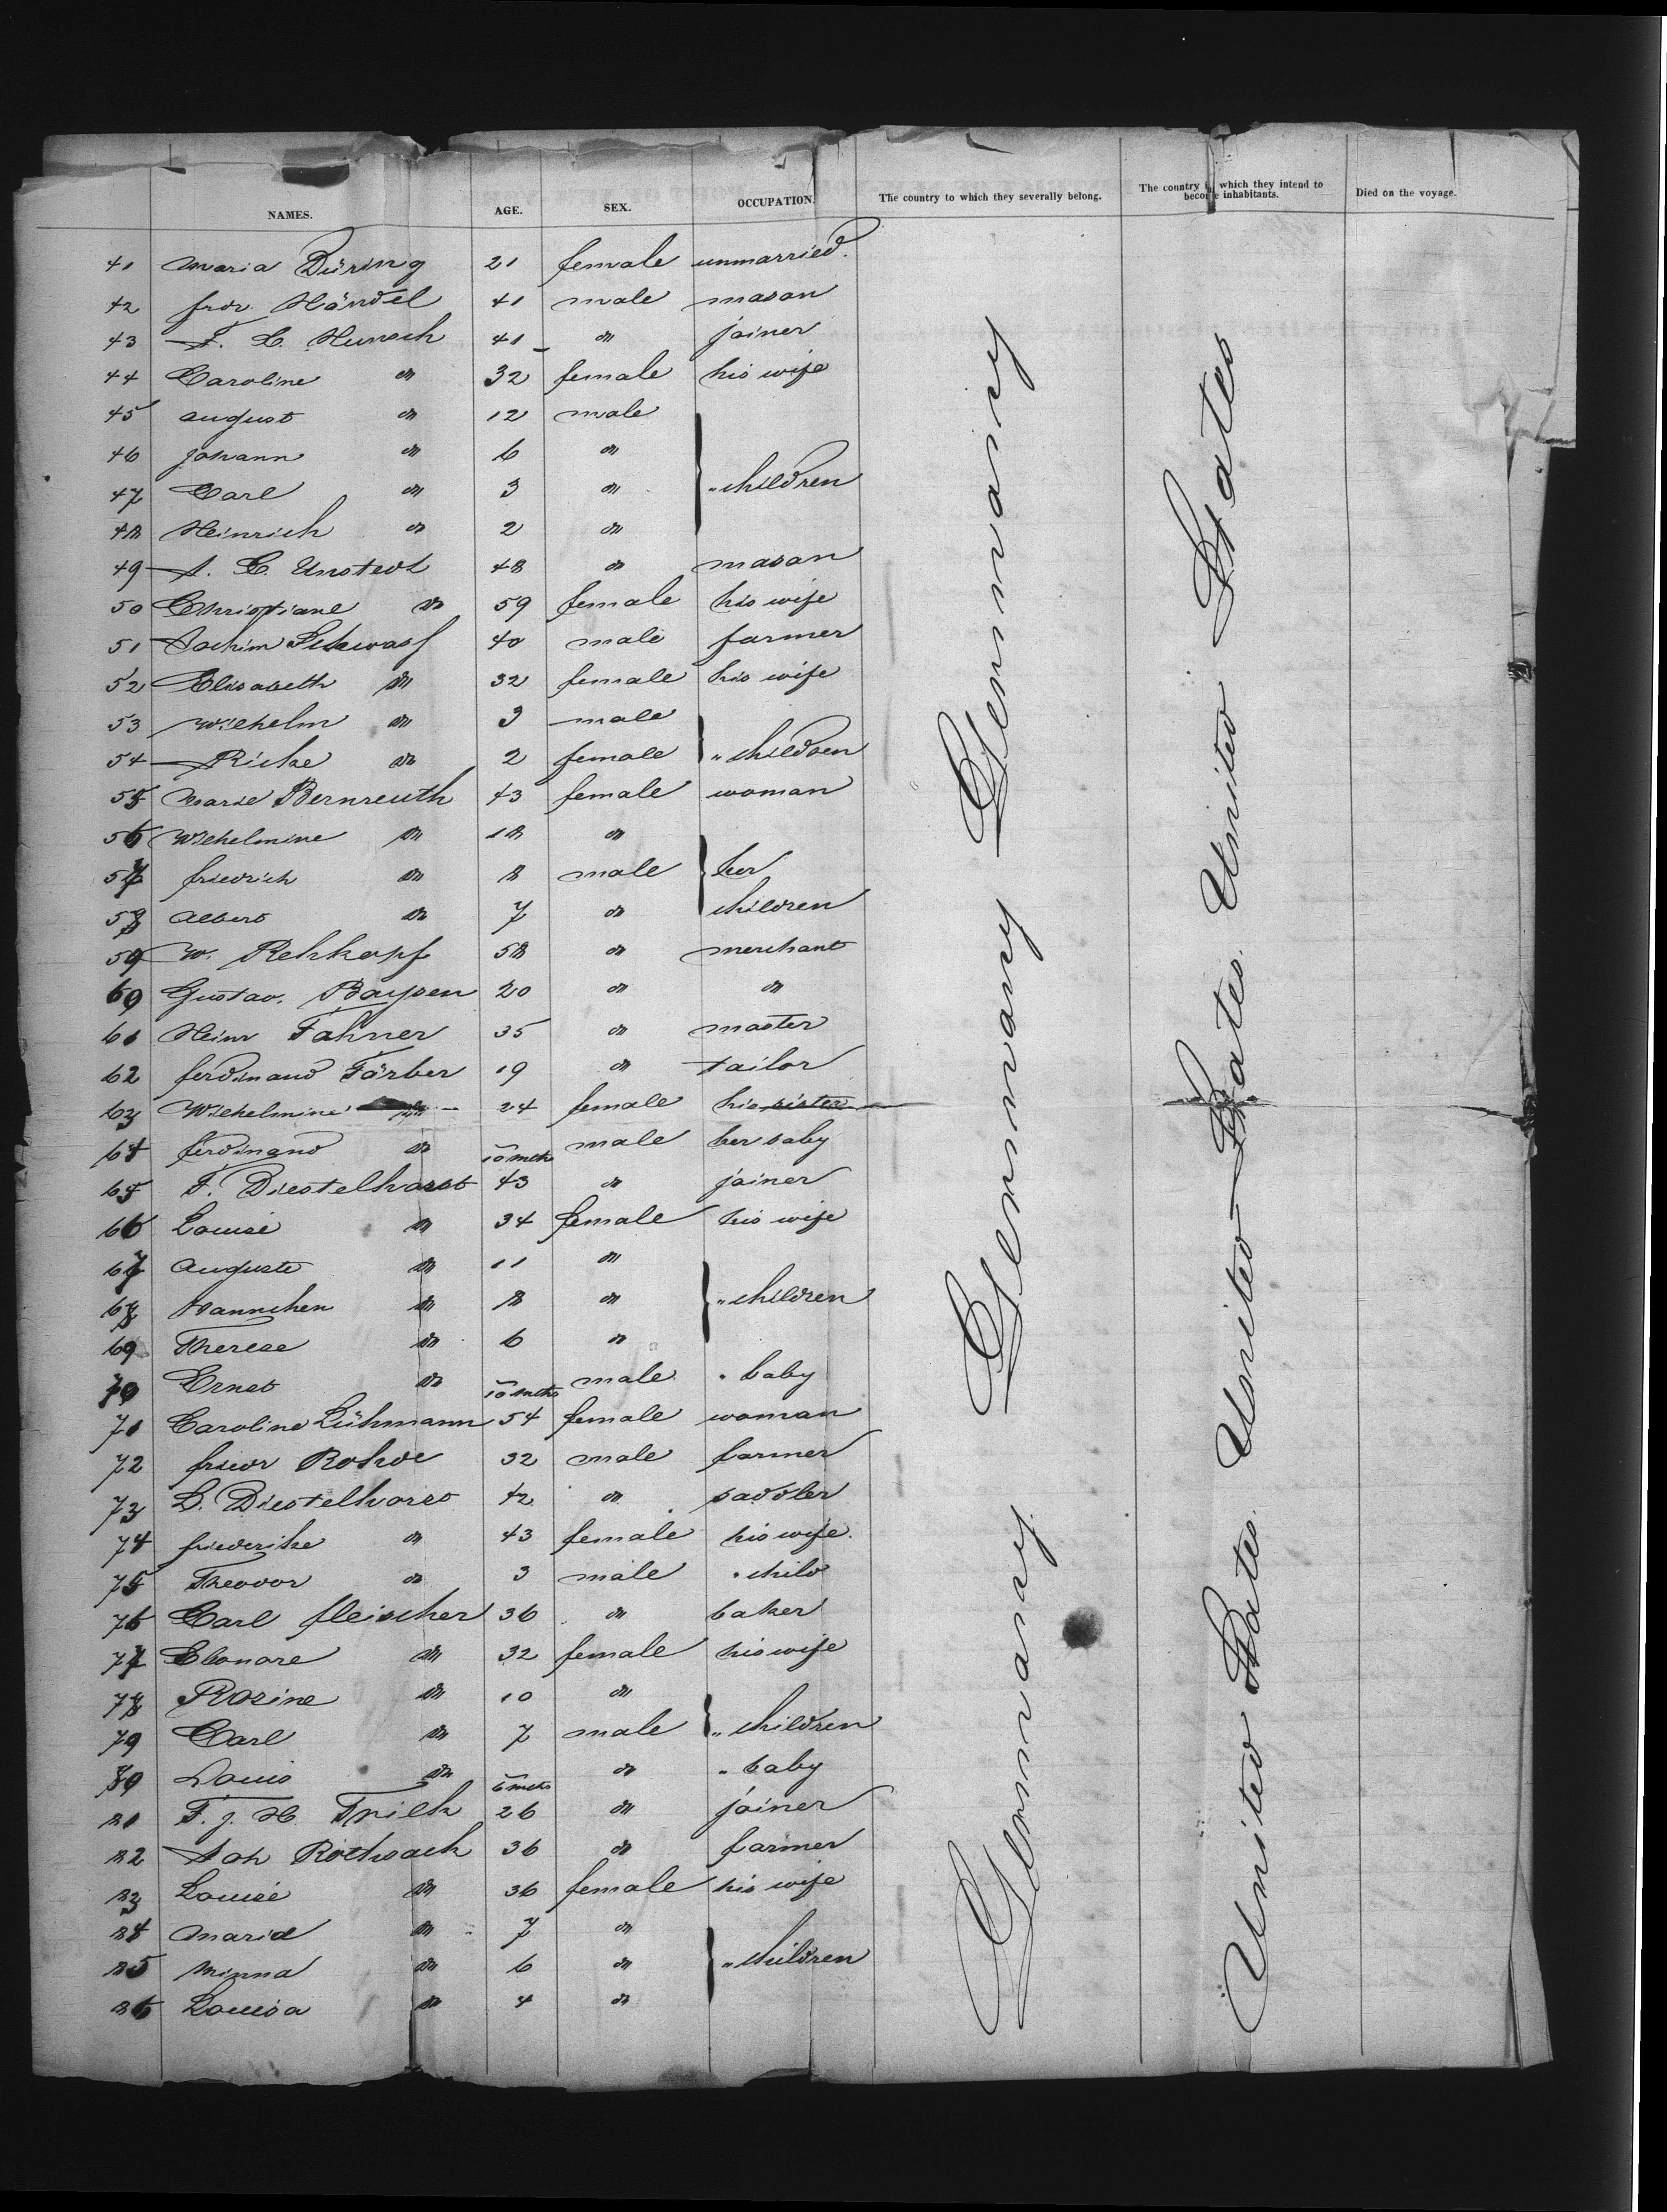 NAMES. AGE. SEX. OCCUPATION. The country to which they severally belong. The country in which they intend to become inhabitants. Died on the voyage.
41 Maria Düring 21 female unmarried.
42 Frdr. Händel 41 male mason
43 F. C. Hunsch 41 " joiner
44 Caroline " 32 female his wife
45 August " 12 male
46 Johann " 6 "
47 Carl " 3 " " children
48 Heinrich " 2 "
49 A. C. Unstedt 48 " mason
50 Christiane " 59 female his wife
51 Jochim 40 male farmer
52 Elisabeth " 32 female his wife
53 Wilhelm " 3 male
54 Rieke " 2 female " children
55 Marie Bernreuth 43 female woman
56 Wilhelmine " 18 "
57 Friedrich " 8 male her
58 Albert " 7 " children
59 W. Rehkopf 58 " merchant
60 Gustav. Baysen 20 " "
61 Heinr Fahner 35 " master
62 Ferdinand Färber 19 " tailor
63 Wilhelmine 24 female his sister
64 Ferdinand " 10 mths male her baby
65 F. Diestelhorst 43 " joiner
66 Louise " 34 female his wife
67 Auguste " 11 "
68 Hannchen " 8 " " children
69 Therese " 6 "
70 Ernst " 10 mths male " baby
71 Caroline Lühmann 54 female woman
72 Friedr Rohde 32 male farmer
73 L. Diestelhorst 42 " saddler
74 Friederike " 43 female his wife.
75 Theodor " 3 male " child
76 Carl Fleischer 36 " baker
77 Elonore " 32 female his wife
78 Rosine " 10 "
79 Carl " 7 male " children
80 Louis " 6 mths " " baby
81 F. J. H. Trilk 26 " joiner
82 Joh Rothsack 36 " farmer
83 Louise " 36 female his wife
84 Maria " 7 "
85 Minna " 6 " " children
86 Louisa " 4 "
Germany Germany Germany Germany
United States. United States. United States